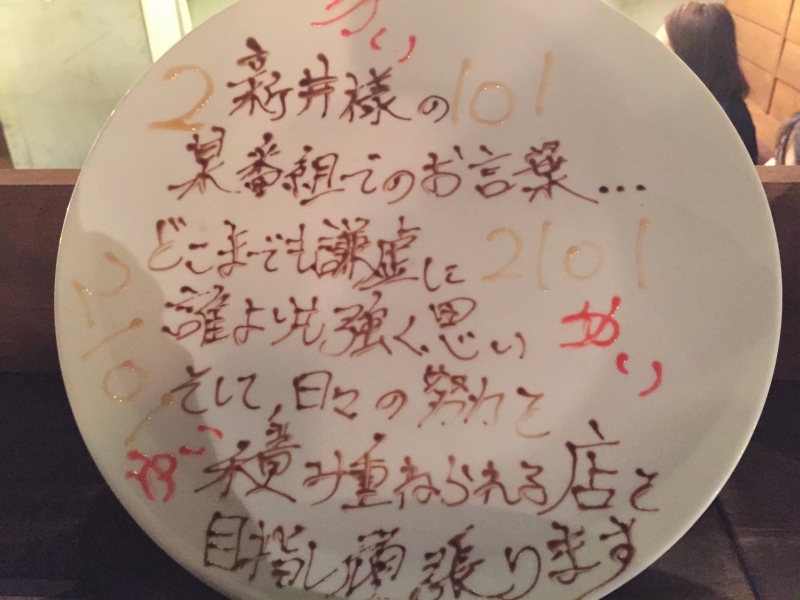 めい
2 新井様の 101
某番組でのお言葉...
どこまでも謙虚に 2101
誰よりも強く思い めい
210
そして、日々の努力を
めい
積み重ねられる店を
目指し頑張ります